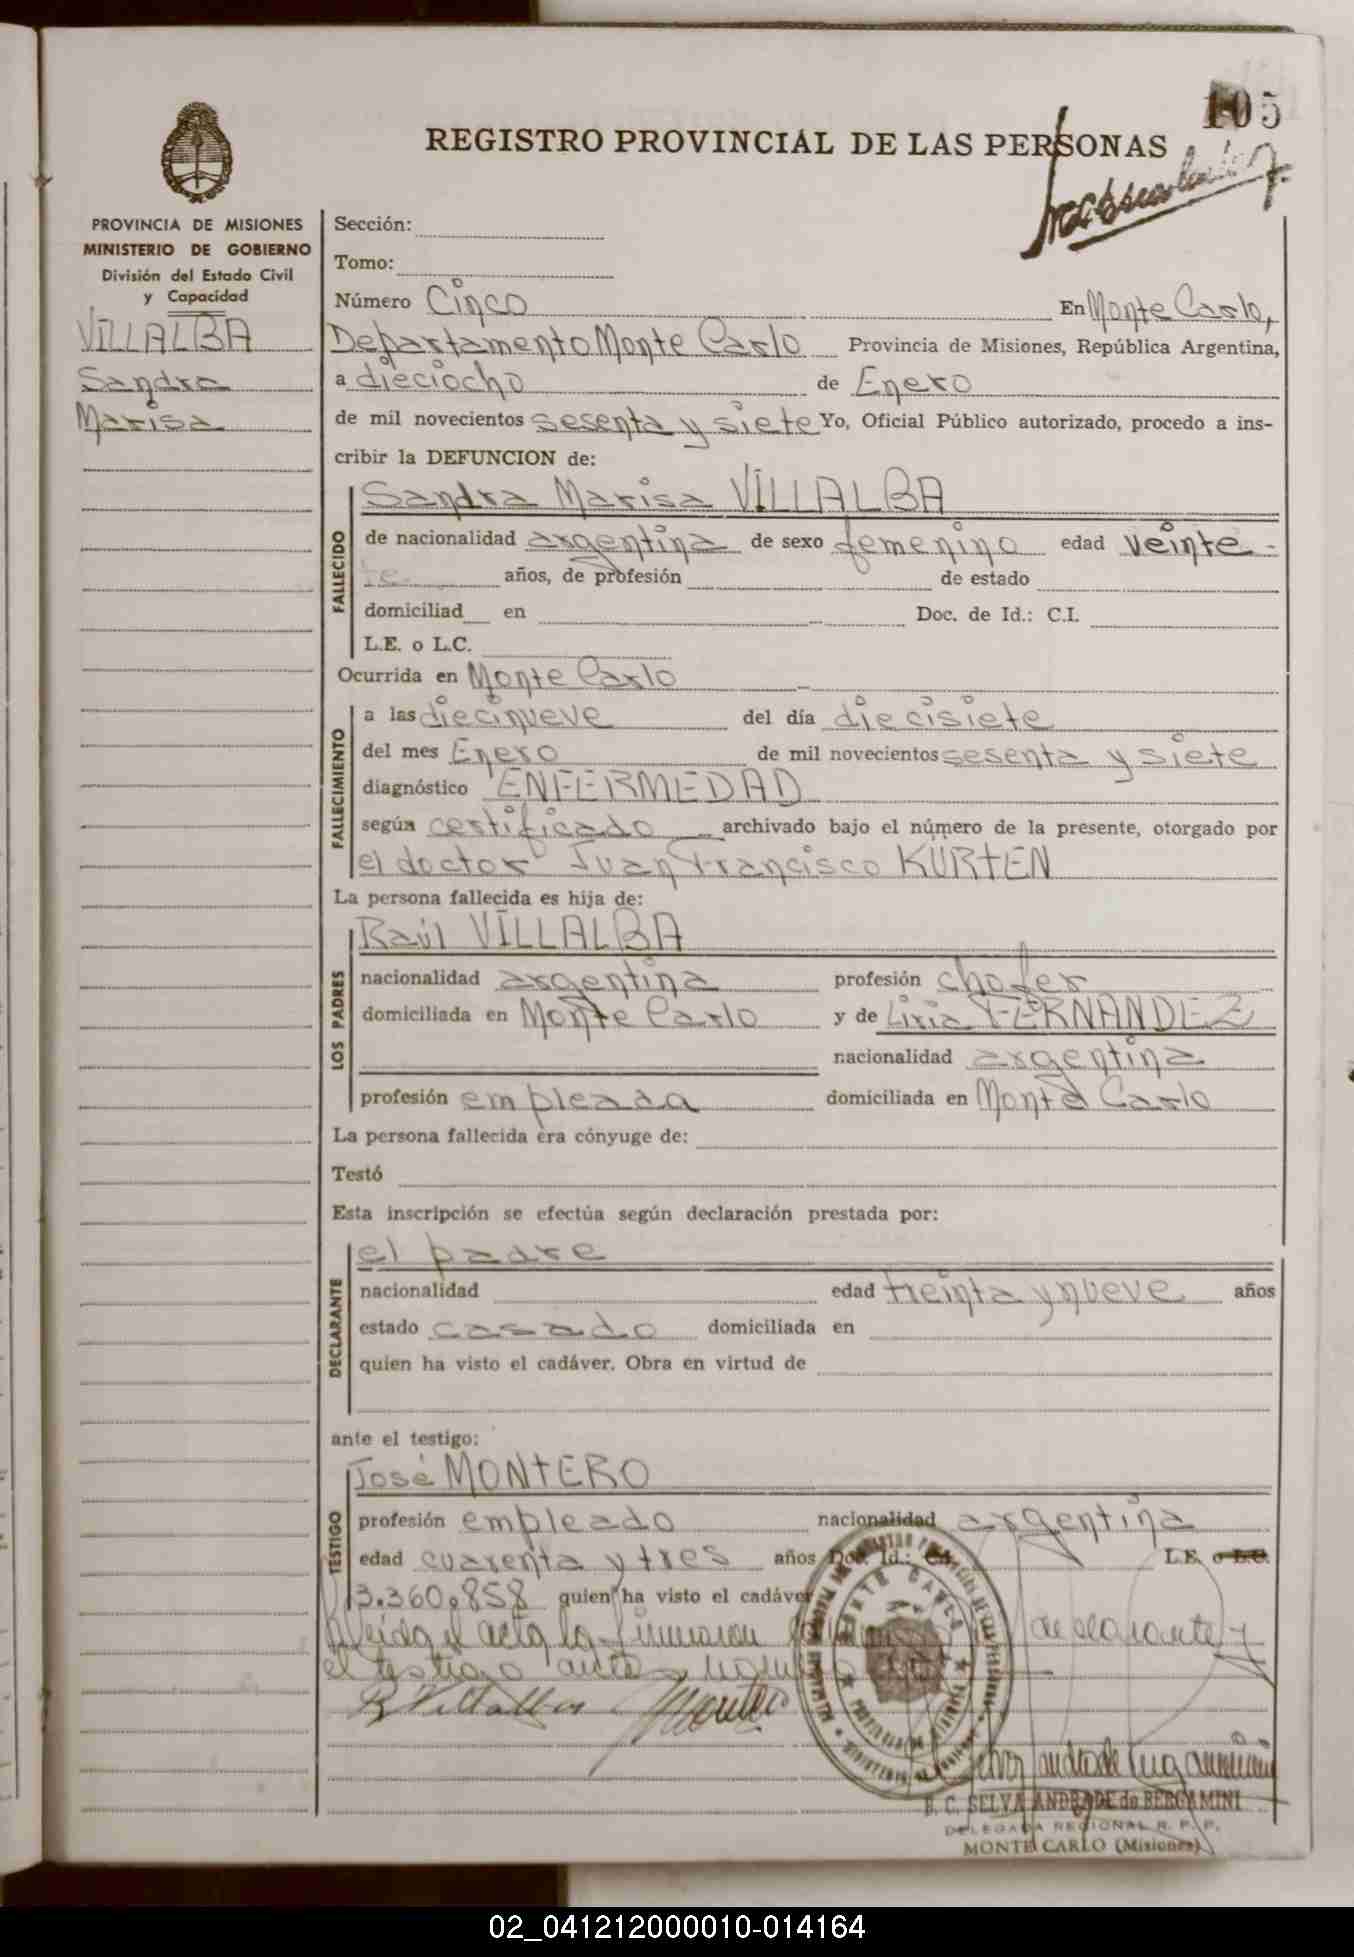 105
REGISTRO PROVINCIAL DE LAS PERSONAS
PROVINCIA DE MISIONES
MINISTERIO DE GOBIERNO
División del Estado Civil
y Capacidad
VILLALBA
Sandra
Marisa
Sección:
Tomo:
Número Cinco En Monte Carlo,
Departamento Monte Carlo Provincia de Misiones, República Argentina,
a dieciocho de Enero
de mil novecientos sesenta y siete Yo, Oficial Público autorizado, procedo a ins-
cribir la DEFUNCION de:
Sandra Marisa VILLALBA
FALLECIDO
de nacionalidad argentina de sexo femenino edad veinte
años, de profesión de estado
domiciliad en Doc. de Id.: C.I.
L.E. o L.C.
Ocurrida en Monte Carlo
FALLECIMIENTO
a las diecinueve del día diecisiete
del mes Enero de mil novecientos sesenta y siete
diagnóstico ENFERMEDAD
según certificado archivado bajo el número de la presente, otorgado por
el doctor Juan Francisco KÜRTEN
La persona fallecida es hija de:
Raúl VILLALBA
LOS PADRES
nacionalidad argentina profesión chofer
domiciliada en Monte Carlo y de Liria FERNANDEZ
nacionalidad argentina
profesión empleada domiciliada en Monte Carlo
La persona fallecida era cónyuge de:
Testó
Esta inscripción se efectúa según declaración prestada por:
el padre
DECLARANTE
nacionalidad edad treinta y nueve años
estado casado domiciliada en
quien ha visto el cadáver. Obra en virtud de
ante el testigo:
José MONTERO
TESTIGO
profesión empleado nacionalidad argentina
edad cuarenta y tres años Doc. Id.: C.I. L.E. o L.C.
3.360.858 quien ha visto el cadáver
Leída el acta la firmaron declarante y
el testigo ante
R Villalba Montero
MONTE CARLO
B. C. SELVA ANDRADE de BERGAMINI
DELEGADA REGIONAL R. P. P.
MONTE CARLO (Misiones)
02_041212000010-014164